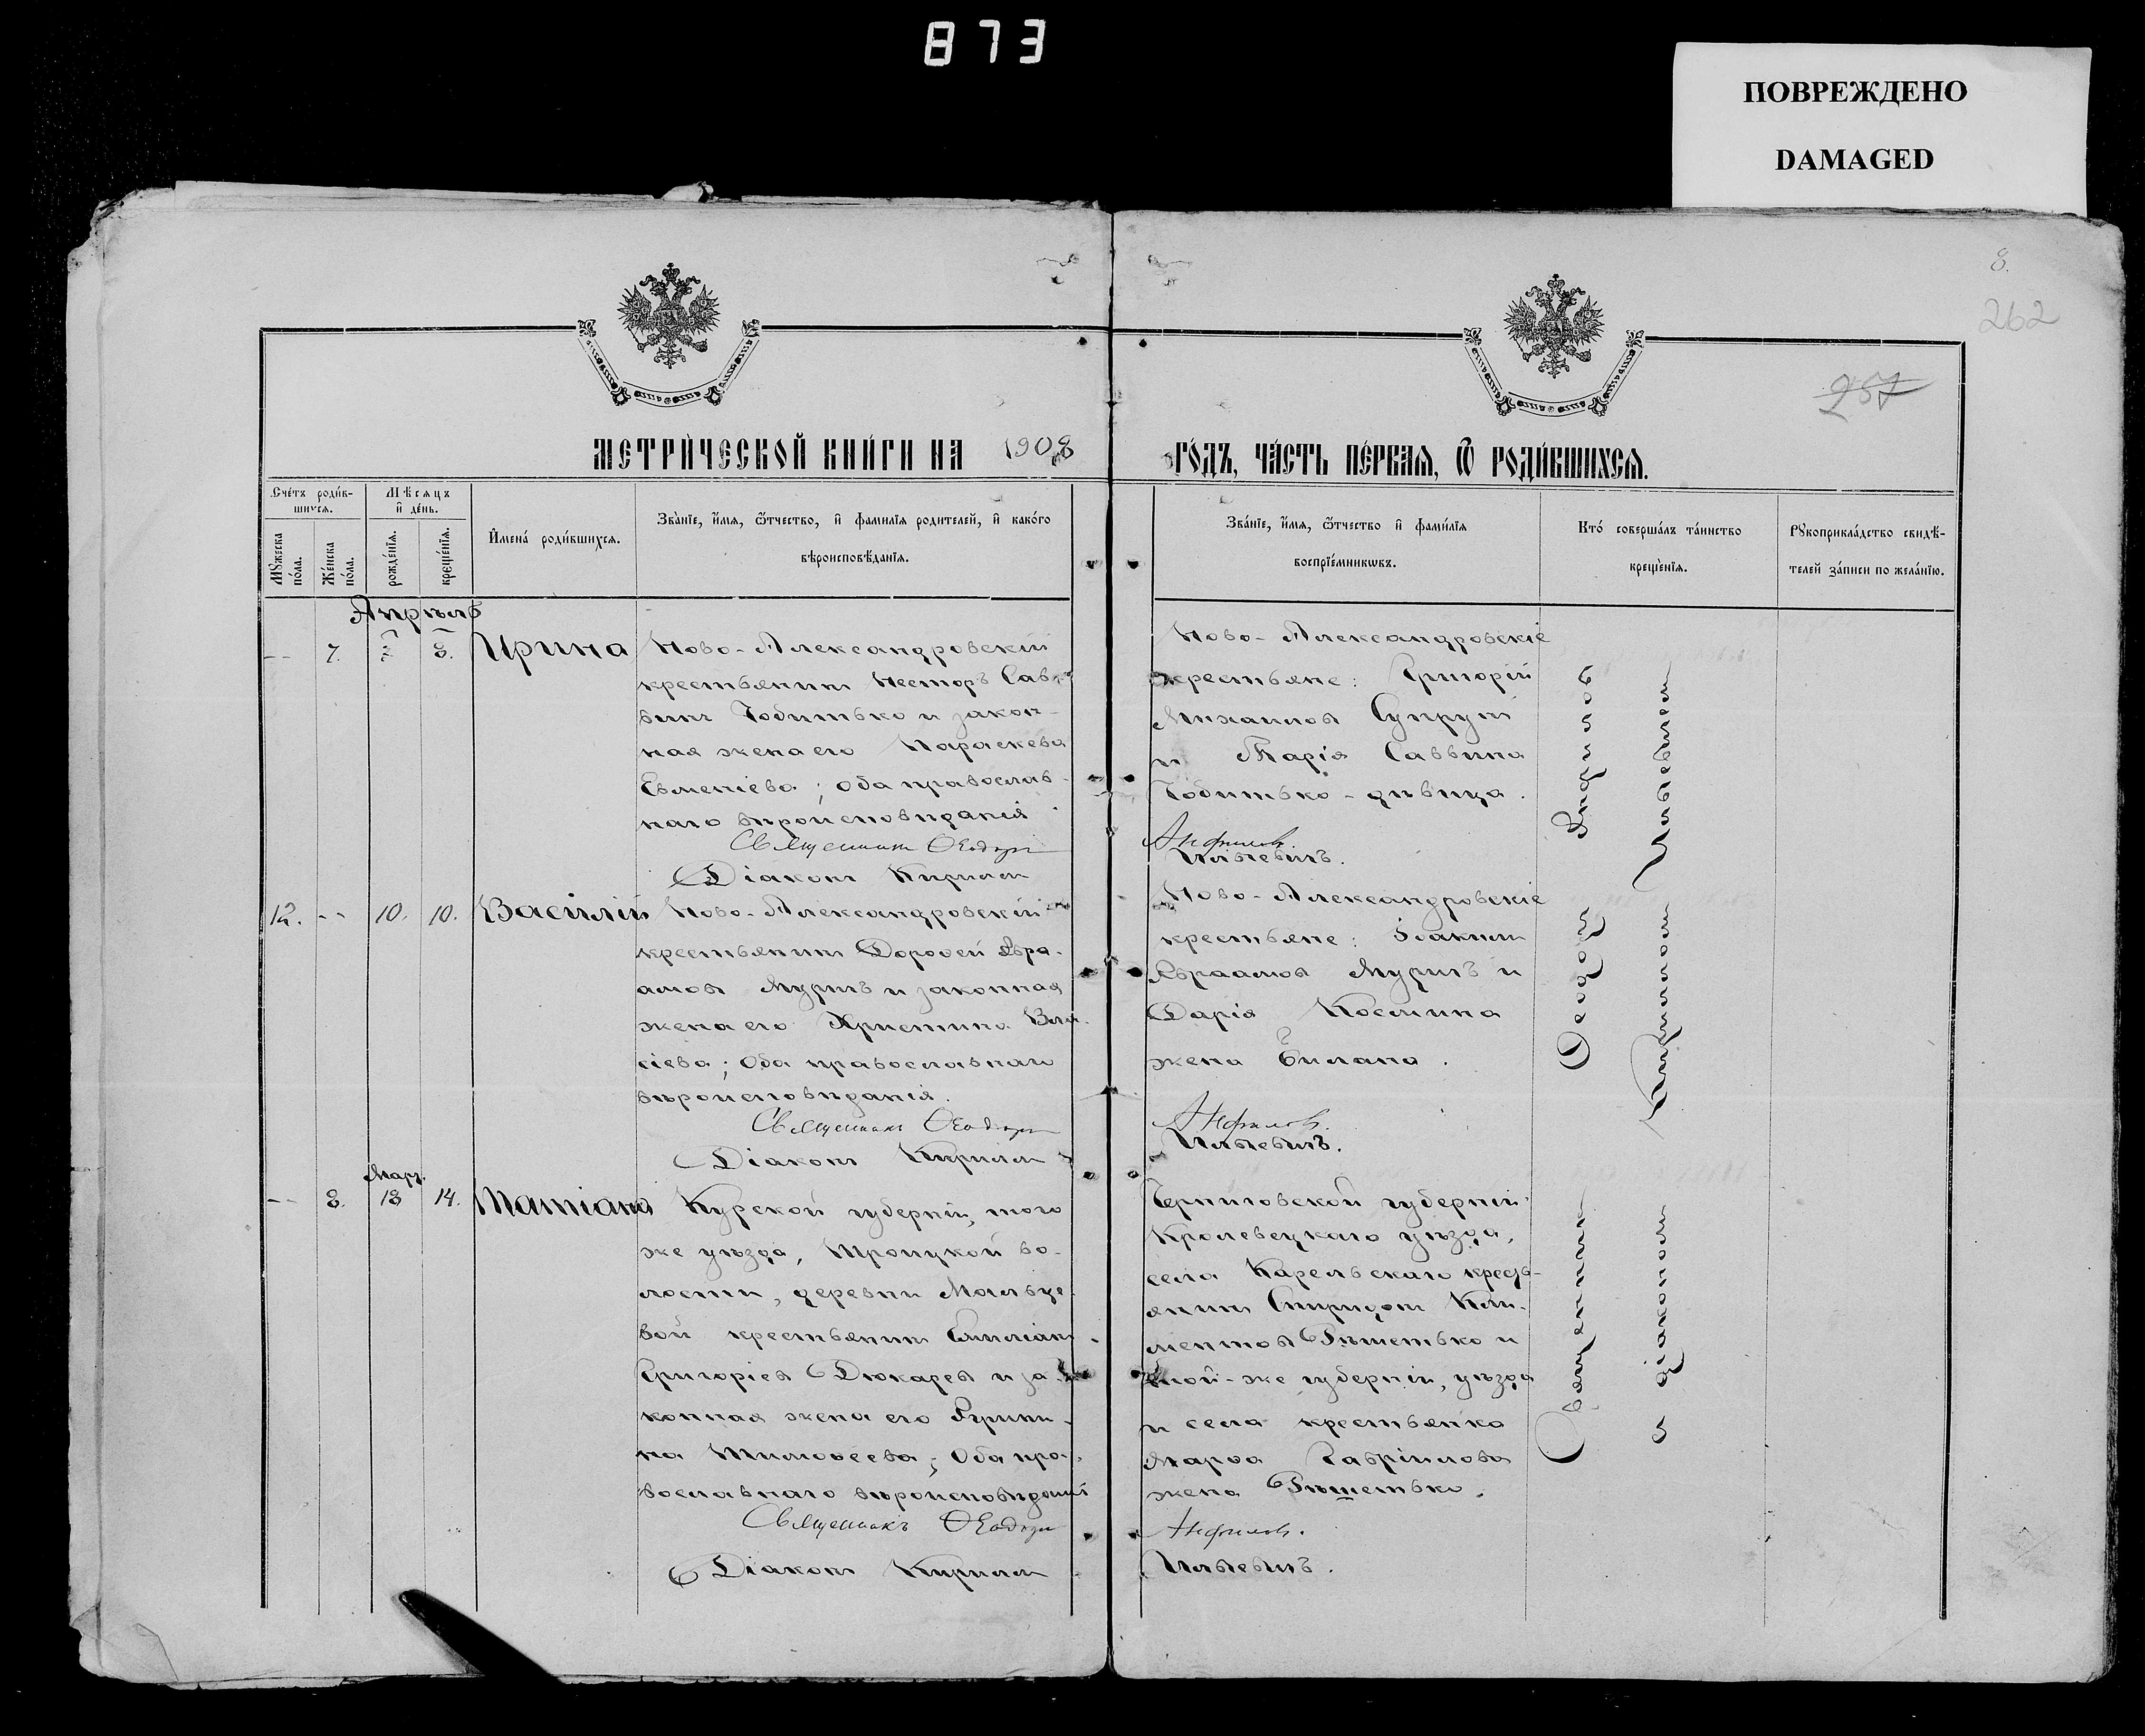 873
ПОВРЕЖДЕНО
DAMAGED
8.
262
257
МЕТРИ́ЧЕСКОЙ КНИ́ГИ НА 1908
ГО́ДЪ, ЧА́СТЬ ПЕ́РВАЯ, Ѿ РОДИ́ВШИХСЯ.
Сче́тъ роди́в-
шихся.
Мѣсяцъ
и де́нь.
Мꙋжеска по́ла.
Же́нска по́ла.
рожде́нїя.
креще́нїя.
Имена́ роди́вшихся.
Зва́нїе, и́мя, ѻ́тчество, и фами́лїя родителей, и како́го
вѣроисповѣ́данїя.
Зва́нїе, и́мя, ѻ́тчество и фами́лїя
воспрїе́мникѡвъ.
Кто́ соверша́лъ та́инство
креще́нїя.
Рꙋкоприкла́дство свидѣ-
телей за́писи по жела́нїю.
Апрѣль
-- 7. 7 8. Ирина
Ново-Александровскій
крестьянинъ Несторъ Сав-
винъ Кобитько и закон-
ная жена его Параскева
Евменіева; оба православ-
наго вѣроисповѣданія
Священникъ Ѳеодоръ
Діаконъ Кириллъ
Ново-Александровскіе
крестьяне: Григорій
Михаиловъ Супрунъ
и Марія Саввина
Кобитько-дѣвица.
Анфиловъ.
Ильевичъ.
12. -- 10. 10. Василій
Ново-Александровскій
крестьянинъ Дороѳей Авра-
амовъ и законная
жена его Христина Вла-
сіева; Оба православнаго
вѣроисповѣданія.
Священникъ Ѳеодоръ
Діаконъ Кириллъ
Ново-Александровскіе
крестьяне: Іоакимъ
Авраамовъ и
Дарія Космина
жена Билана.
Анфиловъ.
Ильевичъ.
Март.
-- 8. 13 14. Татіана
Курской губерніи, того
же уѣзда, Троицкой во-
лости, деревни
крестьянинъ Емиліанъ
Григоріевъ Дюкаревъ и за-
конная жена его Ирини-
на Тимоѳеева; Оба пра-
вославнаго вѣроисповѣданія
Священникъ Ѳеодоръ
Діаконъ Кириллъ
Черниговской губерніи
Кролевецкаго уѣзда,
села Карельскаго кресть-
янинъ Спиридонъ Кли-
ментовъ Рѣшетько и
той-же губерніи, уѣзда
и села крестьянка
Марѳа Гавріилова
жена Рѣшетько.
Анфиловъ.
Ильевичъ.
Священникъ Ѳеодоръ Анфиловъ
и діакономъ Кирилломъ Ильевичемъ